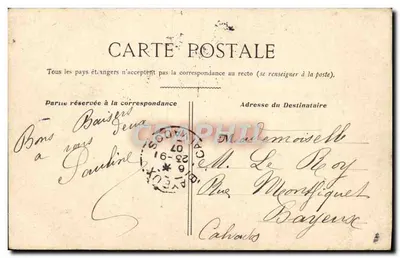 CARTE POSTALE
Tous les pays étrangers n'acceptent pas la correspondance au recto (se renseigner à la poste).
Partie réservée à la correspondance
Adresse du Destinataire
Bons Baisers
à vous deux
Pauline
Mademoiselle
M. Le Roy
Rue Montfiquet
Bayeux
Calvados